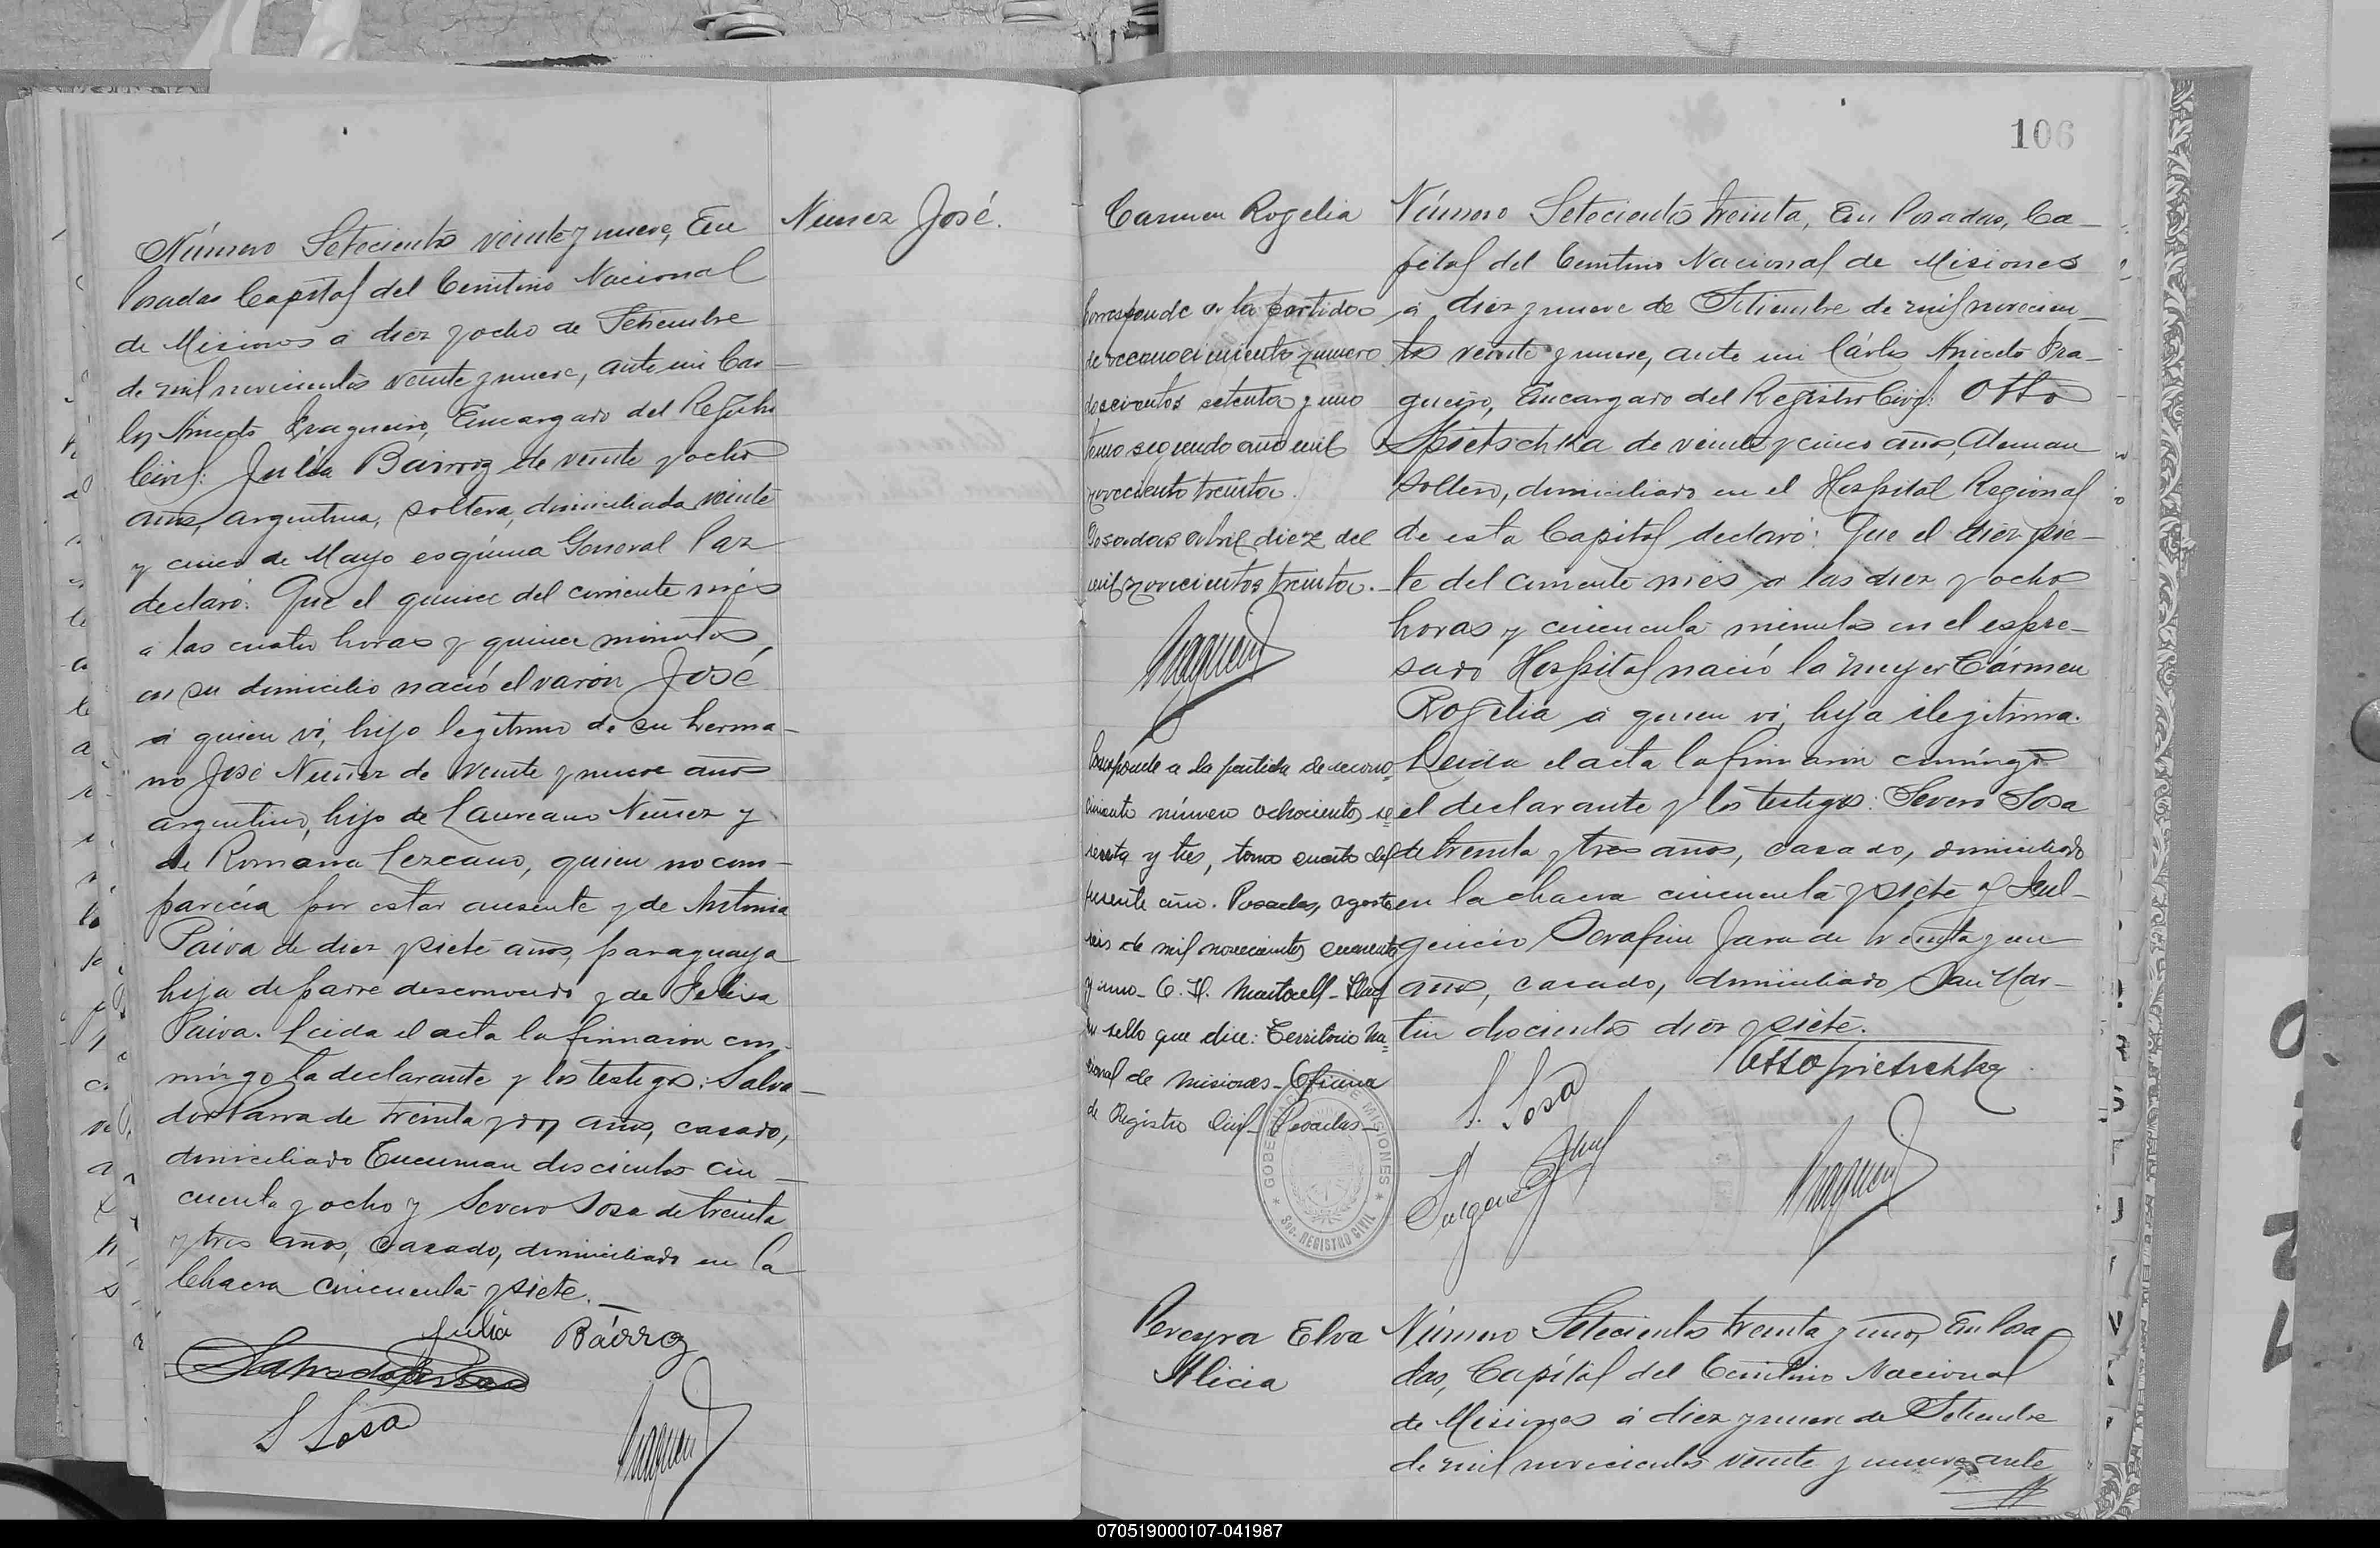 Número Setecientos veinte y nueve, En
Posadas Capital del Territorio Nacional
de Misiones a diez y ocho de Setiembre
de mil novecientos veinte y nueve, ante mi Car-
los Aniceto Fragueiro, Encargado del Registro
Civil: Julia Bairroz de veinte y ocho
años, argentina, soltera, domiciliada veinte
y cinco de Mayo esquina General Paz
declaró: Que el quince del corriente més
a las cuatro horas y quince minutos,
en su domicilio nació el varón José
a quien vi, hijo legítimo de su herma-
no José Nuñez de veinte y nueve años
argentino, hijo de Laureano Nuñez y
de Romana Lezcano, quien no com-
parecía por estar ausente y de Antonia
Paiva de diez y siete años, paraguaya
hija de padre desconocido y de Felisa
Paiva. Leida el acta la firmaron con-
mígo la declarante y los testigos: Salva-
dor Parra de treinta y dos años, casado,
domiciliado Tucuman doscientos cin-
cuenta y ocho y Severo Sosa de treinta
y tres años, casado, domiciliado en la
Chacra cincuenta y siete.
Julia Báirroz
S Sosa
Nunez José.
106
Carmen Rogelia
Corresponde a la partida
de reconocimiento numero
doscientos setenta y uno
tomo segundo año mil
novecientos treinta.
Posadas abril diez del
mil novecientos treinta.-
Corresponde a la partida de recono-
cimiento número ochocientos se-
senta y tres, tomo cuarto del
presente año. Posadas, agosto
seis de mil novecientos cuarenta
y uno- C. H. Hay
un sello que dice: Territorio Na-
cional de Misiones- Oficina
de Registro Civil- Posadas-
GOBERNACION DE MISIONES
Sec. REGISTRO CIVIL
Número Setecientos treinta, En Posadas, Ca-
pital del Territorio Nacional de Misiones
a diez y nueve de Setiembre de mil novecien-
tos veinte y nueve, ante mi Cárlos Aniceto Fra-
gueiro, Encargado del Registro Civil: Otto
Spietschka de veinte y cinco años, Aleman
soltero, domiciliado en el Hospital Regional
de esta Capital declaró: Que el diez y sie-
te del corriente mes a las diez y ocho
horas y cincuenta minutos en el espre-
sado Hospital nació la mujer Cármen
Rogelia a quien vi, hija ilegitima.
Leida el acta la firmaron conmígo
el declarante y los testigos: Severo Sosa
de treinta y tres años, casado, domiciliado
en la chacra cincuenta y siete y Ful-
gencio Serafin Jara de treinta y un
años, casado, domiciliado San Mar-
tin doscientos diez y siete.
S. Sosa
Pereyra Elva
Alicia
Número Setecientos treinta y uno, En Posa
das, Capital del Territorio Nacional
de Misiones á diez y nueve de Setiembre
de mil novecientos veinte y nueve, ante
070519000107-041987